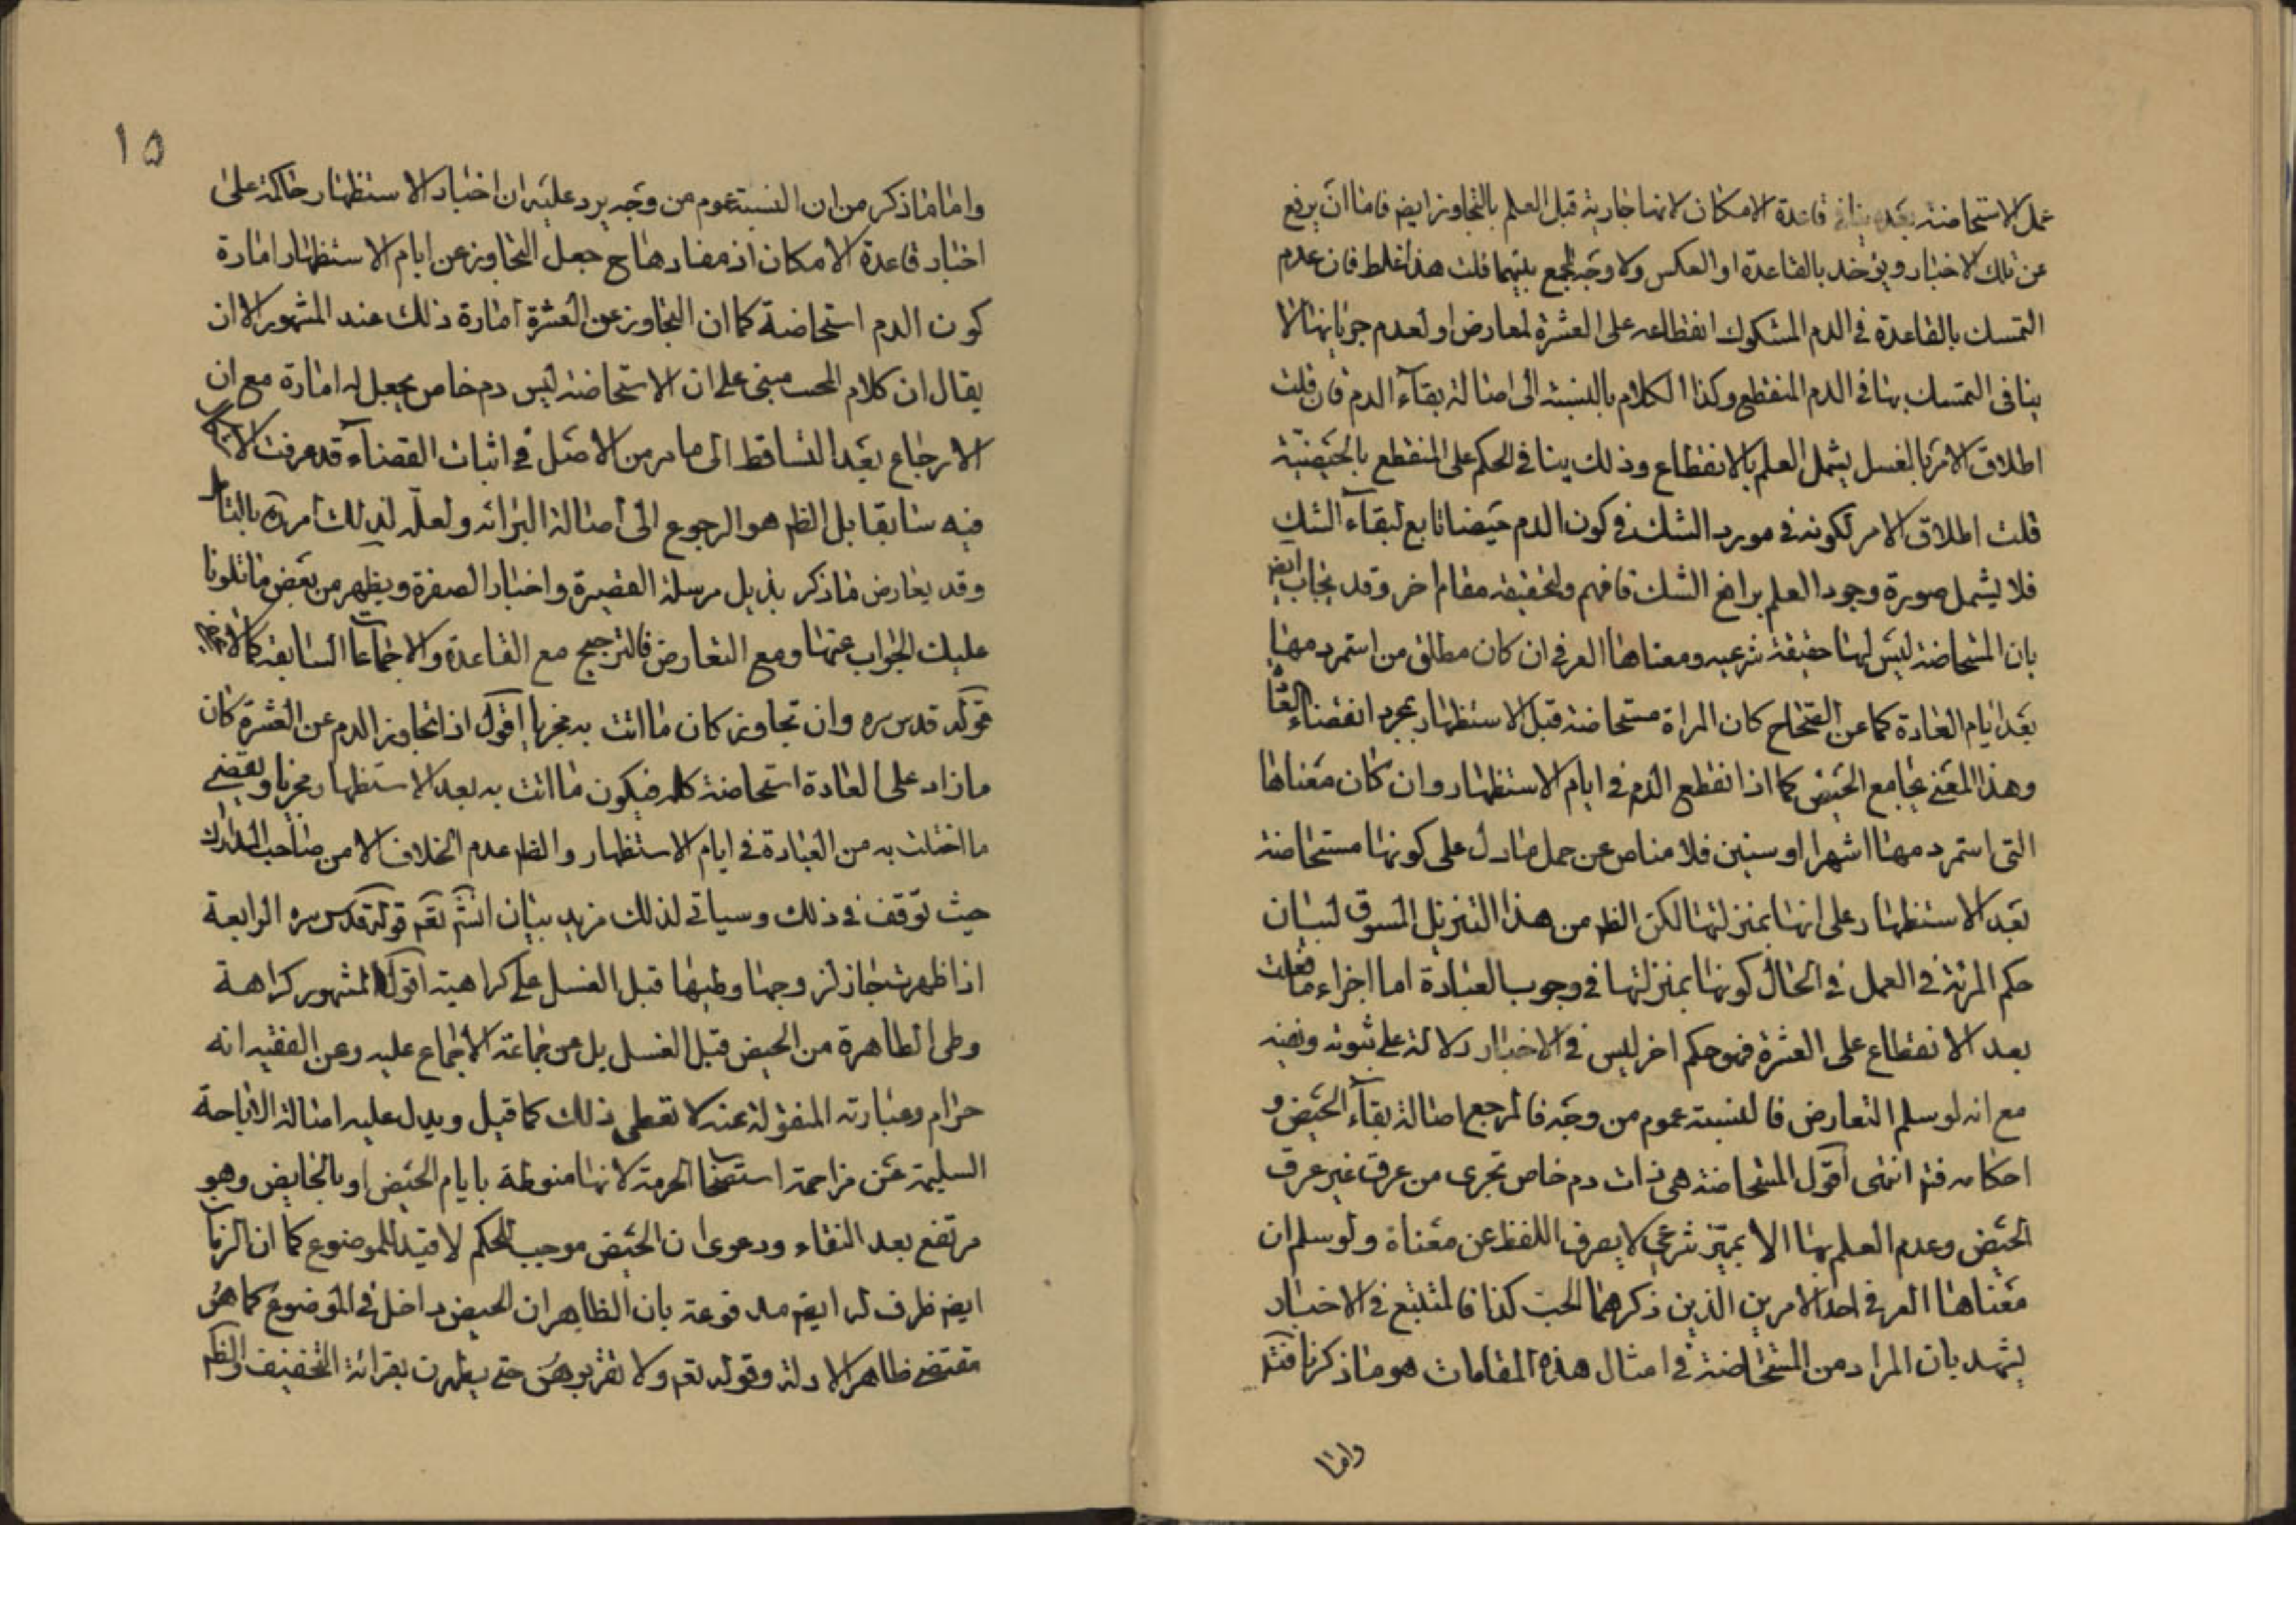 عمل الاستحاضة بعده ينافى قاعدة الامكان لانها جارية قبل العلم بالتجاوز ايضا فاما ان يرفع
عن تلك الاخبار ويؤخذ بالقاعدة او العكس ولا وجه للجمع بينهما قلت هذا غلط فان عدم
التمسك بالقاعدة في الدم المشكوك انقطاعه على العشرة لمعارض او لعدم جريانها لا
ينافى التمسك بها في الدم المنقطع وكذا الكلام بالنسبة الى اصالة بقآء الدم فان قلت
اطلاق الامر بالغسل يشمل العلم بالانقطاع وذلك ينافي الحكم على المنقطع بالحيضيّة
قلت اطلاق الامر لكونه في مورد الشك في كون الدم حيضا تابع لبقآء الشك
فلا يشمل صورة وجود العلم برافع الشك فافهم ولتحقيقه مقام اخر وقد يجاب ايض
بان المستحاضة ليس لها حقيقة شرعيه ومعناها العرفي ان كان مطلق من استمر دمها
بعد ايام العادة كما عن الصحاح كان المراة مستحاضة قبل الاستظهار بمجرد انقضاء العادة
وهذا المعنى يجامع الحيض كما اذا انقطع الدم في ايام الاستظهار وان كان معناها
التى استمر دمها اشهرا او سنين فلا مناص عن حمل ما دل على كونها مستحاضة
بعد الاستظهار على انها بمنزلتها لكن الظ من هذا التنزيل المسوق لبيان
حكم المرئة في العمل في الحال كونها بمنزلتها في وجوب العبادة اما اجزاء ما فعلت
بعد الانقطاع على العشرة فهو حكم اخر ليس في الاخبار دلالة على ثبوته ونفيه
مع انه لو سلم التعارض فالنسبة عموم من وجه فالمرجع اصالة بقآء الحيض و
احكامه فتم انتهى اقول المستحاضة هي ذات دم خاص تجرى من عرق غير عرق
الحيض وعدم العلم بها الا بمميّز شرعي لا يصرف اللفظ عن معناة ولو سلم ان
معناها العرفي احد الامرين الذين ذكرهما المجيب كذا فالمتتبع في الاخبار
يشهد بان المراد من المستحاضة في امثال هذه المقامات هو ما ذكرنا فتد
واما
١٥
واما ما ذكر من ان النسبة عموم من وجه يرد عليه ان اخبار الاستظهار حاكمة على
اخبار قاعدة الامكان اذ مفادها ح جعل التجاوز عن ايام الاستظهار امارة
كون الدم استحاضة كما ان التجاوز عن العشرة امارة ذلك عند المشهور الا ان
يقال ان كلام المجيب مبنى على ان الاستحاضة ليس دم خاص يجعل له امارة مع ان
الارجاع بعد التساقط الى ما مر من الاصل في اثبات القضآء قد عرفت الاشكال
فيه سابقا بل الظ هو الرجوع الى اصالة البرائه ولعلّه لذلك امره بالتامل
وقد يعارض ما ذكر بذيل مرسلة القصيرة واخبار الصفرة ويظهر من بعض ما تلونا
عليك الجواب عنها ومع التعارض فالترجيح مع القاعدة والاجماعات السابقة كما لا يخفى
قوله قدس سره وان تجاوز كان ما اتت به مجزيا اقول اذا تجاوز الدم عن العشرة كان
ما زاد على العادة استحاضة كله فيكون ما اتت به بعد الاستظهار مجزيا ويقضى
ما اخلت به من العبادة في ايام الاستظهار والظ عدم الخلاف الا من صاحب المدارك
حيث توقف في ذلك وسياتي لذلك مزيد بيان انشآء تعم قوله قدس سره الرابعة
اذا ظهرت جاز لزوجها وطيها قبل الغسل على كراهية اقول المشهور كراهة
وطى الطاهرة من الحيض قبل الغسل بل عن جماعة الاجماع عليه وعن الفقيه انه
حرام وعبارته المنقولة عنه لا تعطى ذلك كما قيل ويدل عليه اصالة الاباحة
السليمة عن مزاحمة استصحاب الحرمة لانها منوطة بايام الحيض او بالحايض وهو
مرتفع بعد النقاء ودعوى ان الحيض موجب للحكم لا قيد للموضوع كما ان الزمان
ايض ظرف له ايض مدفوعة بان الظاهر ان الحيض داخل في الموضوع كما هو
مقتضى ظاهر الادلة وقوله تعم ولا تقربوهن حتى يطهرن بقرائة التخفيف والظ